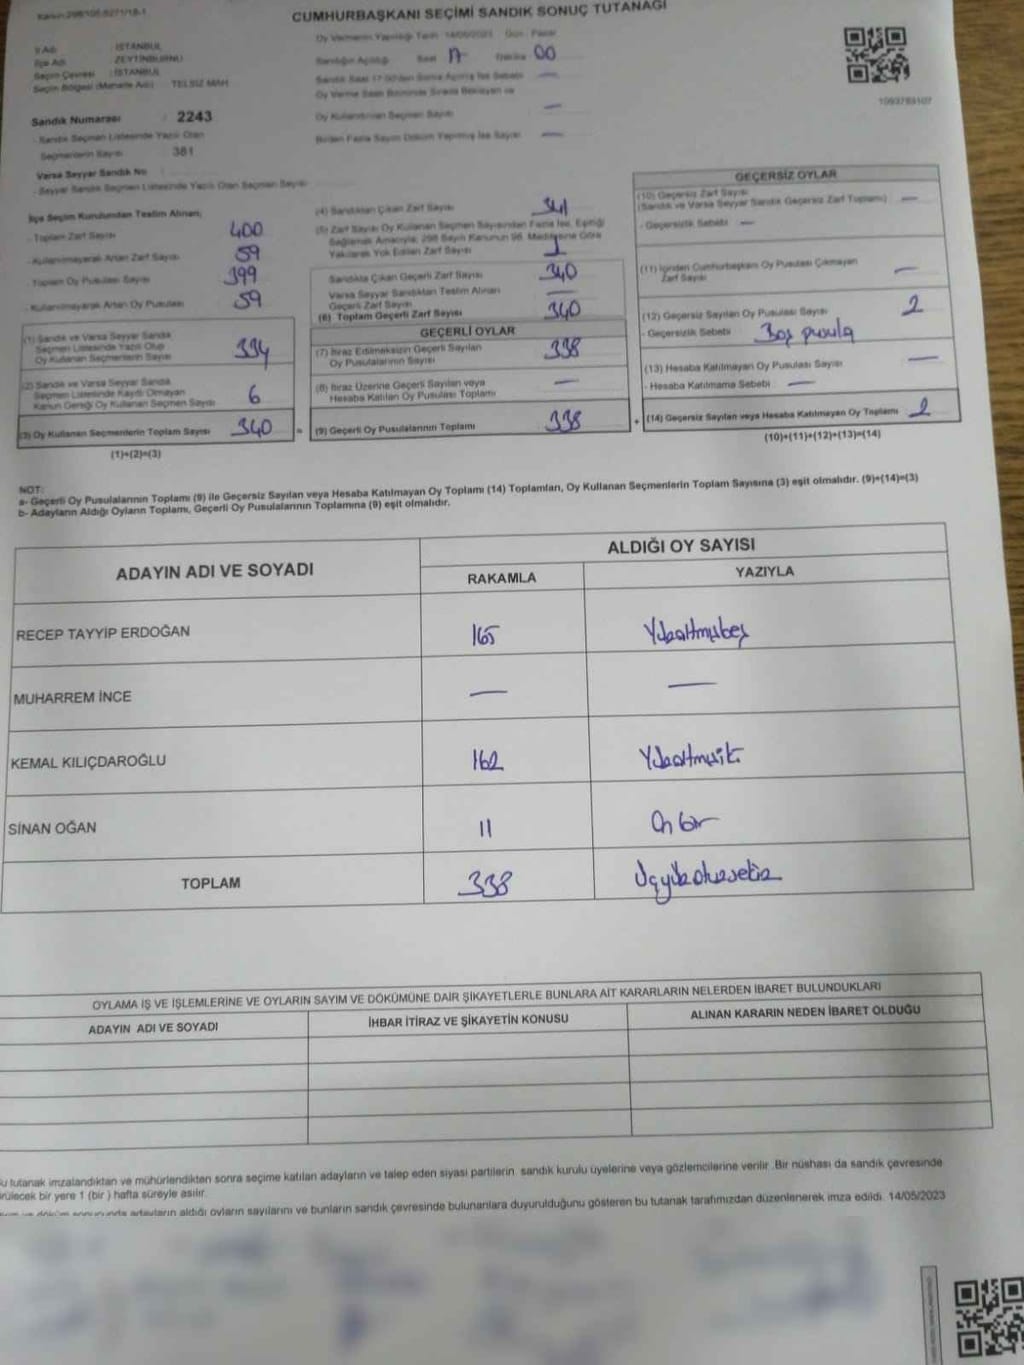 CUMHURBAŞKANI SEÇİMİ SANDIK SONUÇ TUTANAĞI
İl Adı : İSTANBUL
İlçe Adı : ZEYTİNBURNU
Seçim Çevresi : İSTANBUL
Seçim Bölgesi (Mahalle Adı) : TELSİZ MAH
Sandık Numarası : 2243
- Sandık Seçmen Listesinde Yazılı Olan
Seçmenlerin Sayısı : 381
Varsa Seyyar Sandık No
- Seyyar Sandık Seçmen Listesinde Yazılı Olan Seçmen Sayısı
Oy Vermenin Yapıldığı Tarih : 14/05/2023 Gün : Pazar
Sandığın Açıldığı Saat 17 Dakika 00
Sandık Saat 17.00'den Sonra Açılmış İse Sebebi —
Oy Verme Saati Bitiminde Sırada Bekleyen ve
Oy Kullandırılan Seçmen Sayısı —
Birden Fazla Sayım Döküm Yapılmış İse Sayısı —
1093789107
İlçe Seçim Kurulundan Teslim Alınan;
- Toplam Zarf Sayısı 400
- Kullanılmayarak Artan Zarf Sayısı 59
- Toplam Oy Pusulası Sayısı 399
- Kullanılmayarak Artan Oy Pusulası 59
(1) Sandık ve Varsa Seyyar Sandık
Seçmen Listesinde Yazılı Olup
Oy Kullanan Seçmenlerin Sayısı 334
(2) Sandık ve Varsa Seyyar Sandık
Seçmen Listesinde Kayıtlı Olmayan
Kanun Gereği Oy Kullanan Seçmen Sayısı 6
(3) Oy Kullanan Seçmenlerin Toplam Sayısı 340
(1)+(2)=(3)
(4) Sandıktan Çıkan Zarf Sayısı 341
(5) Zarf Sayısı Oy Kullanan Seçmen Sayısından Fazla İse, Eşitliği
Sağlamak Amacıyla; 298 Sayılı Kanunun 98. Maddesine Göre
Yakılarak Yok Edilen Zarf Sayısı 1
Sandıkta Çıkan Geçerli Zarf Sayısı 340
Varsa Seyyar Sandıktan Teslim Alınan
Geçerli Zarf Sayısı —
(6) Toplam Geçerli Zarf Sayısı 340
GEÇERLİ OYLAR
(7) İtiraz Edilmeksizin Geçerli Sayılan
Oy Pusulalarının Sayısı 338
(8) İtiraz Üzerine Geçerli Sayılan veya
Hesaba Katılan Oy Pusulası Toplamı —
= (9) Geçerli Oy Pusulalarının Toplamı 338
GEÇERSİZ OYLAR
(10) Geçersiz Zarf Sayısı
(Sandık ve Varsa Seyyar Sandık Geçersiz Zarf Toplamı) —
- Geçersizlik Sebebi —
(11) İçinden Cumhurbaşkanı Oy Pusulası Çıkmayan
Zarf Sayısı —
(12) Geçersiz Sayılan Oy Pusulası Sayısı 2
- Geçersizlik Sebebi Boş pusula
(13) Hesaba Katılmayan Oy Pusulası Sayısı —
- Hesaba Katılmama Sebebi —
+ (14) Geçersiz Sayılan veya Hesaba Katılmayan Oy Toplamı 2
(10)+(11)+(12)+(13)=(14)
NOT:
a- Geçerli Oy Pusulalarının Toplamı (9) ile Geçersiz Sayılan veya Hesaba Katılmayan Oy Toplamı (14) Toplamları, Oy Kullanan Seçmenlerin Toplam Sayısına (3) eşit olmalıdır. (9)+(14)=(3)
b- Adayların Aldığı Oyların Toplamı, Geçerli Oy Pusulalarının Toplamına (9) eşit olmalıdır.
ADAYIN ADI VE SOYADI ALDIĞI OY SAYISI
RAKAMLA YAZIYLA
RECEP TAYYİP ERDOĞAN 165 Yüzaltmışbeş
MUHARREM İNCE — —
KEMAL KILIÇDAROĞLU 162 Yüzaltmışiki
SİNAN OĞAN 11 On bir
TOPLAM 338 Üçyüzotuzsekiz
OYLAMA İŞ VE İŞLEMLERİNE VE OYLARIN SAYIM VE DÖKÜMÜNE DAİR ŞİKAYETLERLE BUNLARA AİT KARARLARIN NELERDEN İBARET BULUNDUKLARI
ADAYIN ADI VE SOYADI İHBAR İTİRAZ VE ŞİKAYETİN KONUSU ALINAN KARARIN NEDEN İBARET OLDUĞU
u tutanak imzalandıktan ve mühürlendikten sonra seçime katılan adayların ve talep eden siyasi partilerin, sandık kurulu üyelerine veya gözlemcilerine verilir. Bir nüshası da sandık çevresinde
rülecek bir yere 1 (bir) hafta süreyle asılır.
döküm sonucunda adayların aldığı oyların sayılarını ve bunların sandık çevresinde bulunanlara duyurulduğunu gösteren bu tutanak tarafımızdan düzenlenerek imza edildi. 14/05/2023